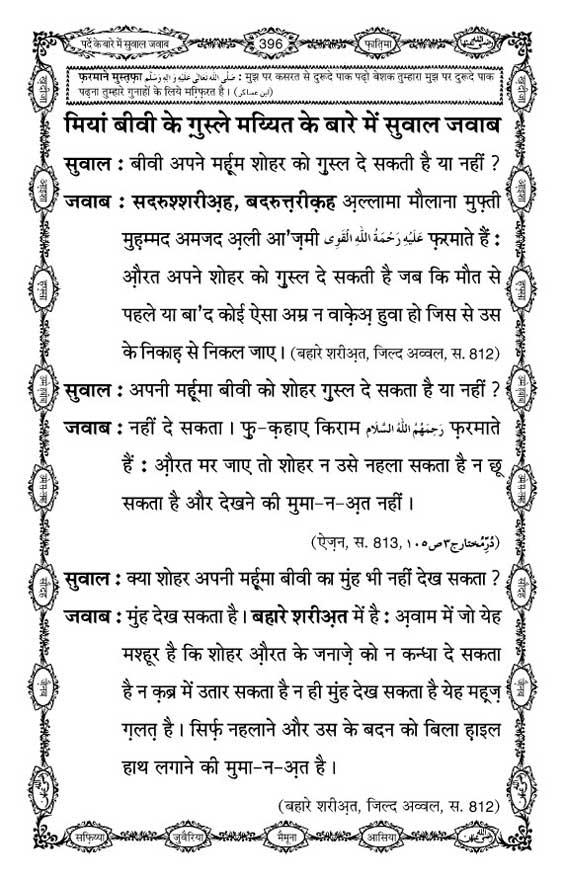 पर्दे के बारे में सुवाल जवाब
396
फ़ातिमा
رضی اللہ عنہا
फ़रमाने मुस्तफ़ा صَلَّى اللهُ تَعَالٰى عَلَيْهِ وَاٰلِهٖ وَسَلَّم : मुझ पर कसरत से दुरूदे पाक पढ़ो बेशक तुम्हारा मुझ पर दुरूदे पाक
पढ़ना तुम्हारे गुनाहों के लिये मग़्फ़िरत है। (ابن عساکر)
मियां बीवी के ग़ुस्ले मय्यित के बारे में सुवाल जवाब
सुवाल : बीवी अपने मर्हूम शोहर को ग़ुस्ल दे सकती है या नहीं ?
जवाब : सदरुश्शरीअ़ह, बदरुत्तरीक़ह अ़ल्लामा मौलाना मुफ़्ती
मुह़म्मद अमजद अ़ली आ'ज़मी عَلَيْهِ رَحْمَةُ اللهِ الْقَوِى फ़रमाते हैं :
औ़रत अपने शोहर को ग़ुस्ल दे सकती है जब कि मौत से
पहले या बा'द कोई ऐसा अम्र न वाक़ेअ़ हुवा हो जिस से उस
के निकाह़ से निकल जाए। (बहारे शरीअ़त, जिल्द अव्वल, स. 812)
सुवाल : अपनी मर्हूमा बीवी को शोहर ग़ुस्ल दे सकता है या नहीं ?
जवाब : नहीं दे सकता। फु-क़हाए किराम رَحِمَهُمُ اللهُ السَّلَام फ़रमाते
हैं : औ़रत मर जाए तो शोहर न उसे नहला सकता है न छू
सकता है और देखने की मुमा-न-अ़त नहीं।
(ऐज़न, स. 813, دُرِّمُختار ج٣ ص١٠٥)
सुवाल : क्या शोहर अपनी मर्हूमा बीवी का मुंह भी नहीं देख सकता ?
जवाब : मुंह देख सकता है। बहारे शरीअ़त में है : अ़वाम में जो येह
मश्हूर है कि शोहर औ़रत के जनाज़े को न कन्धा दे सकता
है न क़ब्र में उतार सकता है न ही मुंह देख सकता है येह मह़ज़
ग़लत़ है। सिर्फ़ नहलाने और उस के बदन को बिला ह़ाइल
हाथ लगाने की मुमा-न-अ़त है।
(बहारे शरीअ़त, जिल्द अव्वल, स. 812)
सफ़िय्या
जुवैरिया
मैमूना
आसिया